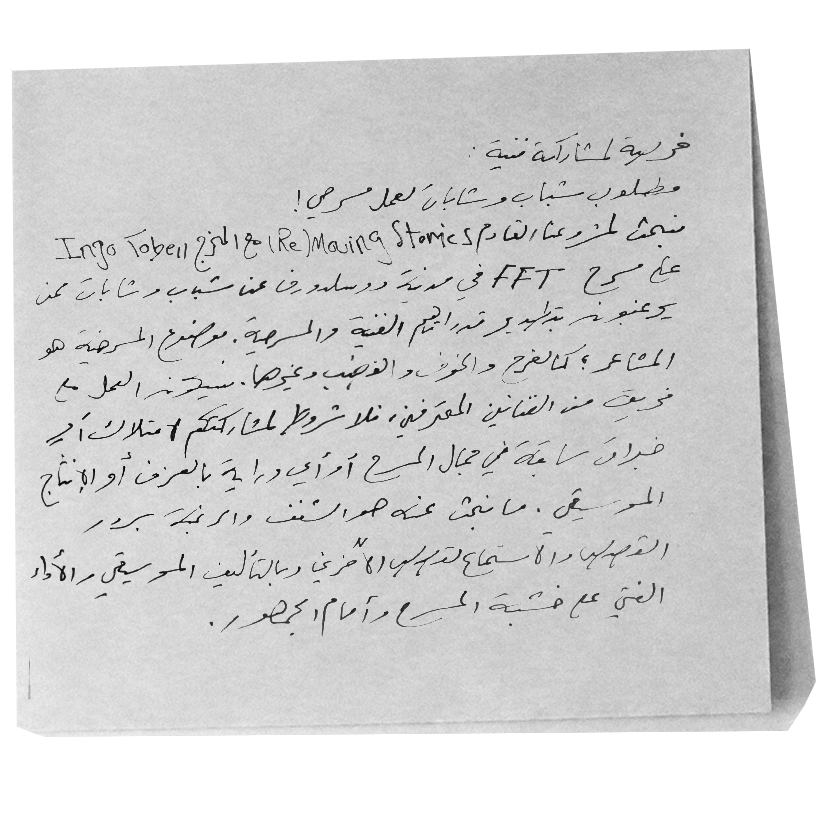 فرصة لمشاركة فنية :
مطلوب شباب وشابات لعمل مسرحي !
نبحث لمشروعنا القادم Re)Moving Stories) مع المخرج Ingo Toben
على مسرح FFT في مدينة دوسلدورف عن شباب وشابات ممن
يرغبون بتطوير قدراتهم الفنية والمسرحية. موضوع المسرحية هو
المشاعر ؛ كالفرح والخوف والغضب وغيرها. سيكون العمل مع
فريق من الفنانين المحترفين، فلا شروط لمشاركتكم لامتلاك أي
خبرات سابقة في مجال المسرح أو أي دراية بالعزف أو الإنتاج
الموسيقي . ما نبحث عنه هو الشغف والرغبة بسرد
القصص والاستماع لقصص الآخرين وبالتأليف الموسيقي والأداء
الفني على خشبة المسرح وأمام الجمهور .